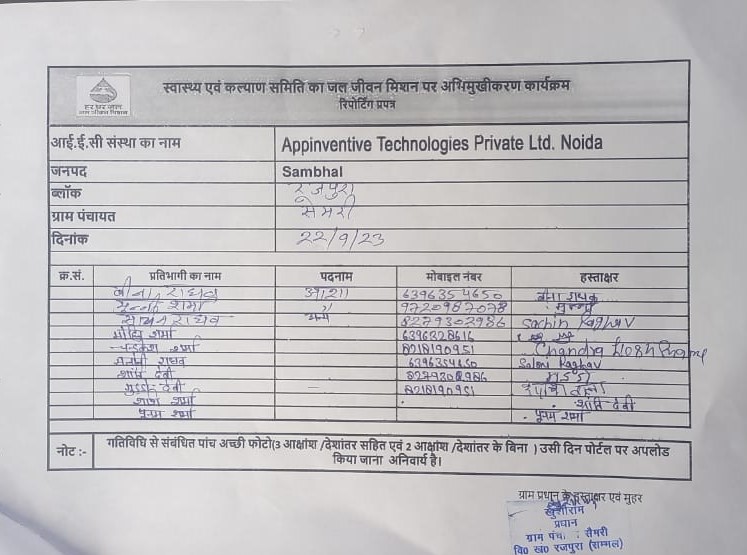 हर घर जल
जल जीवन मिशन
स्वास्थ्य एवं कल्याण समिति का जल जीवन मिशन पर अभिमुखीकरण कार्यक्रम
रिपोर्टिंग प्रपत्र
आई.ई.सी संस्था का नाम Appinventive Technologies Private Ltd. Noida
जनपद Sambhal
ब्लॉक रजपुरा
ग्राम पंचायत सेमरी
दिनांक 22/9/23
क्र.सं. प्रतिभागी का नाम पदनाम मोबाइल नंबर हस्ताक्षर
बीना राघव आशा 6396354650
मुन्नी शर्मा 9720987078
राघव 8279302986 Sachin Raghav
शर्मा 6396328616
शर्मा 8218190951 Chandra
राघव 6396354650 Saloni Raghav
शांति देवी
गुड्डो देवी 8218190951
शर्मा शांति देवी
पूनम शर्मा पूनम शर्मा
नोट :- गतिविधि से संबंधित पांच अच्छी फोटो(3 आक्षांश /देशांतर सहित एवं 2 आक्षांश /देशांतर के बिना ) उसी दिन पोर्टल पर अपलोड
किया जाना अनिवार्य है।
ग्राम प्रधान के हस्ताक्षर एवं मुहर
खुशीराम
प्रधान
ग्राम पंचा० : सैमरी
वि० ख० रजपुरा (सम्भल)